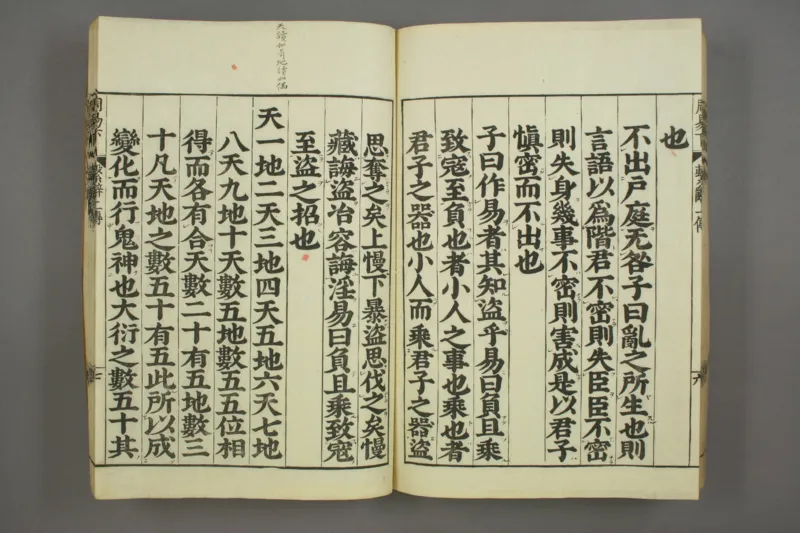 也
不出戸庭无咎子曰亂之所生也則
言語以爲階君不密則失臣臣不密
則失身幾事不密則害成是以君子
愼密而不出也
子曰作易者其知盗乎易曰負且乘
致寇至負也者小人之事也乘也者
君子之器也小人而乘君子之器盗
思奪之矣上慢下暴盗思伐之矣慢
藏誨盗冶容誨淫易曰負且乘致寇
至盗之招也
天一地二天三地四天五地六天七地
八天九地十天數五地數五五位相
得而各有合天數二十有五地數三
十凡天地之數五十有五此所以成
變化而行鬼神也大衍之數五十其
周易下 繫辭上傳